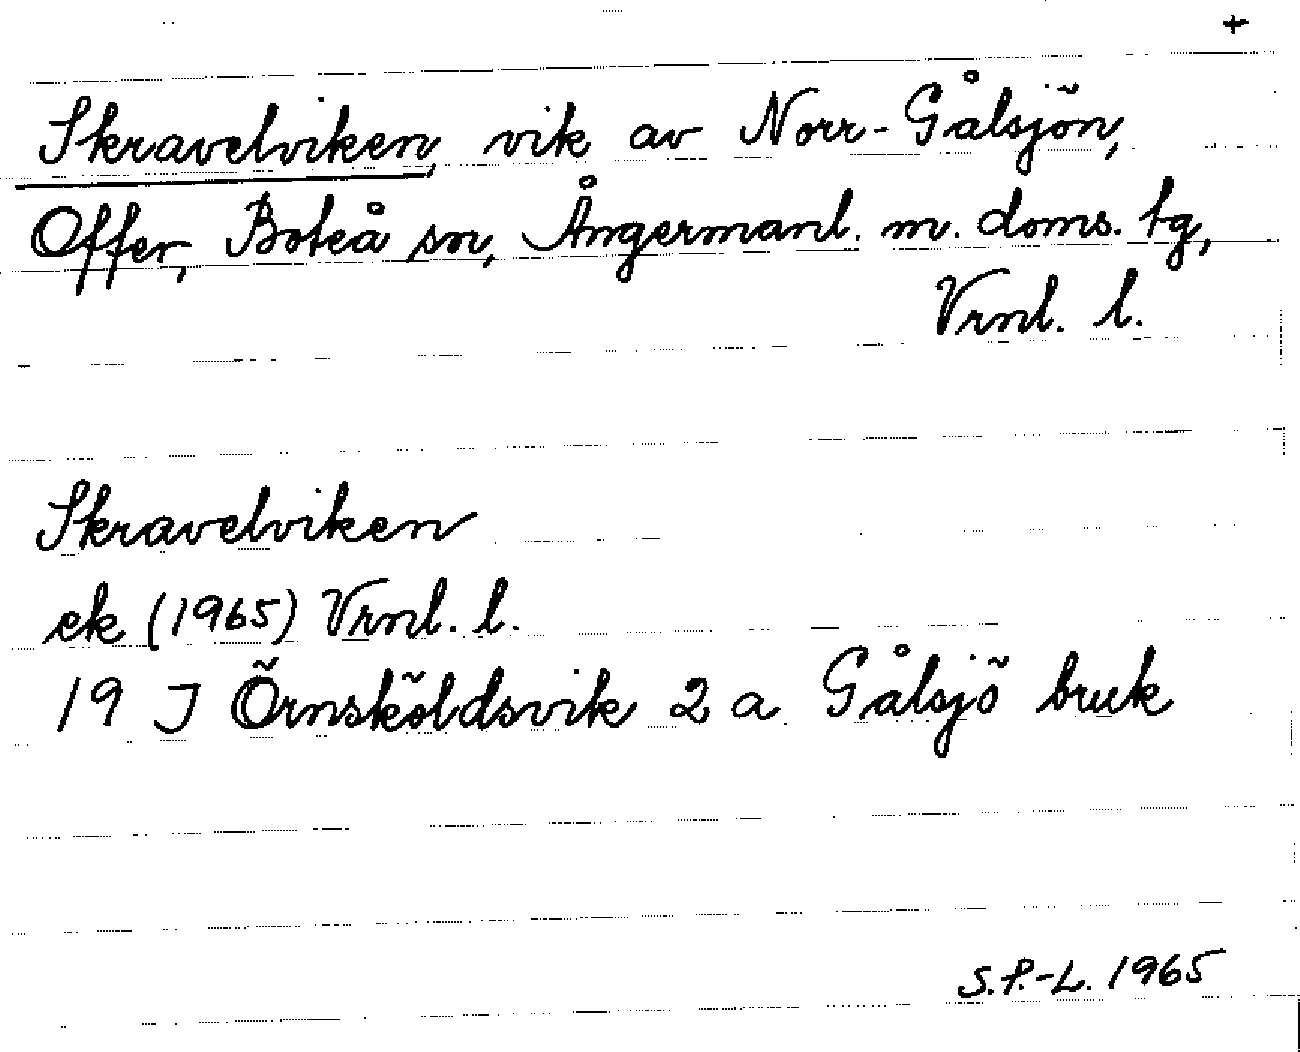 +
Skravelviken, vik av Norr-Gålsjön,
Offer, Boteå sn, Ångermanl. m. doms. tg,
Vrnl. l.
Skravelviken
ek (1965) Vrnl. l.
19 J Örnsköldsvik 2 a Gålsjö bruk
S.P.-L. 1965